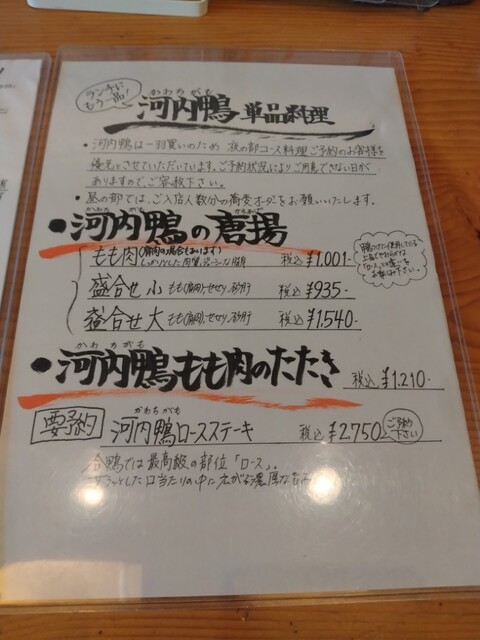 ランチに
もう一品!
かわちがも
河内鴨 単品料理
・河内鴨は一羽買いのため 夜の部コース料理ご予約のお客様を
優先とさせていただいています。ご予約状況によりご用意できない日が
ありますので、ご容赦下さい。
・昼の部では、ご入店人数分の蕎麦オーダーをお願いいたします。
かわちがも からあげ
・河内鴨の唐揚
もも肉(胸肉の場合もあります) 税込 ¥1,001-
しっかりとした肉質、ジューシーな脂身
盛合せ 小 もも(胸肉)、せせり、砂肝 税込 ¥935-
盛合せ 大 もも(胸肉)、せせり、砂肝 税込 ¥1,540-
かわちがも
・河内鴨もも肉のたたき 税込 ¥1,210-
要予約
かわちがも
河内鴨ロースステーキ 税込 ¥2,750
ご予約
下さい
合鴨では最高級の部位「ロース」。
とした口当たりの中に広がる濃厚な